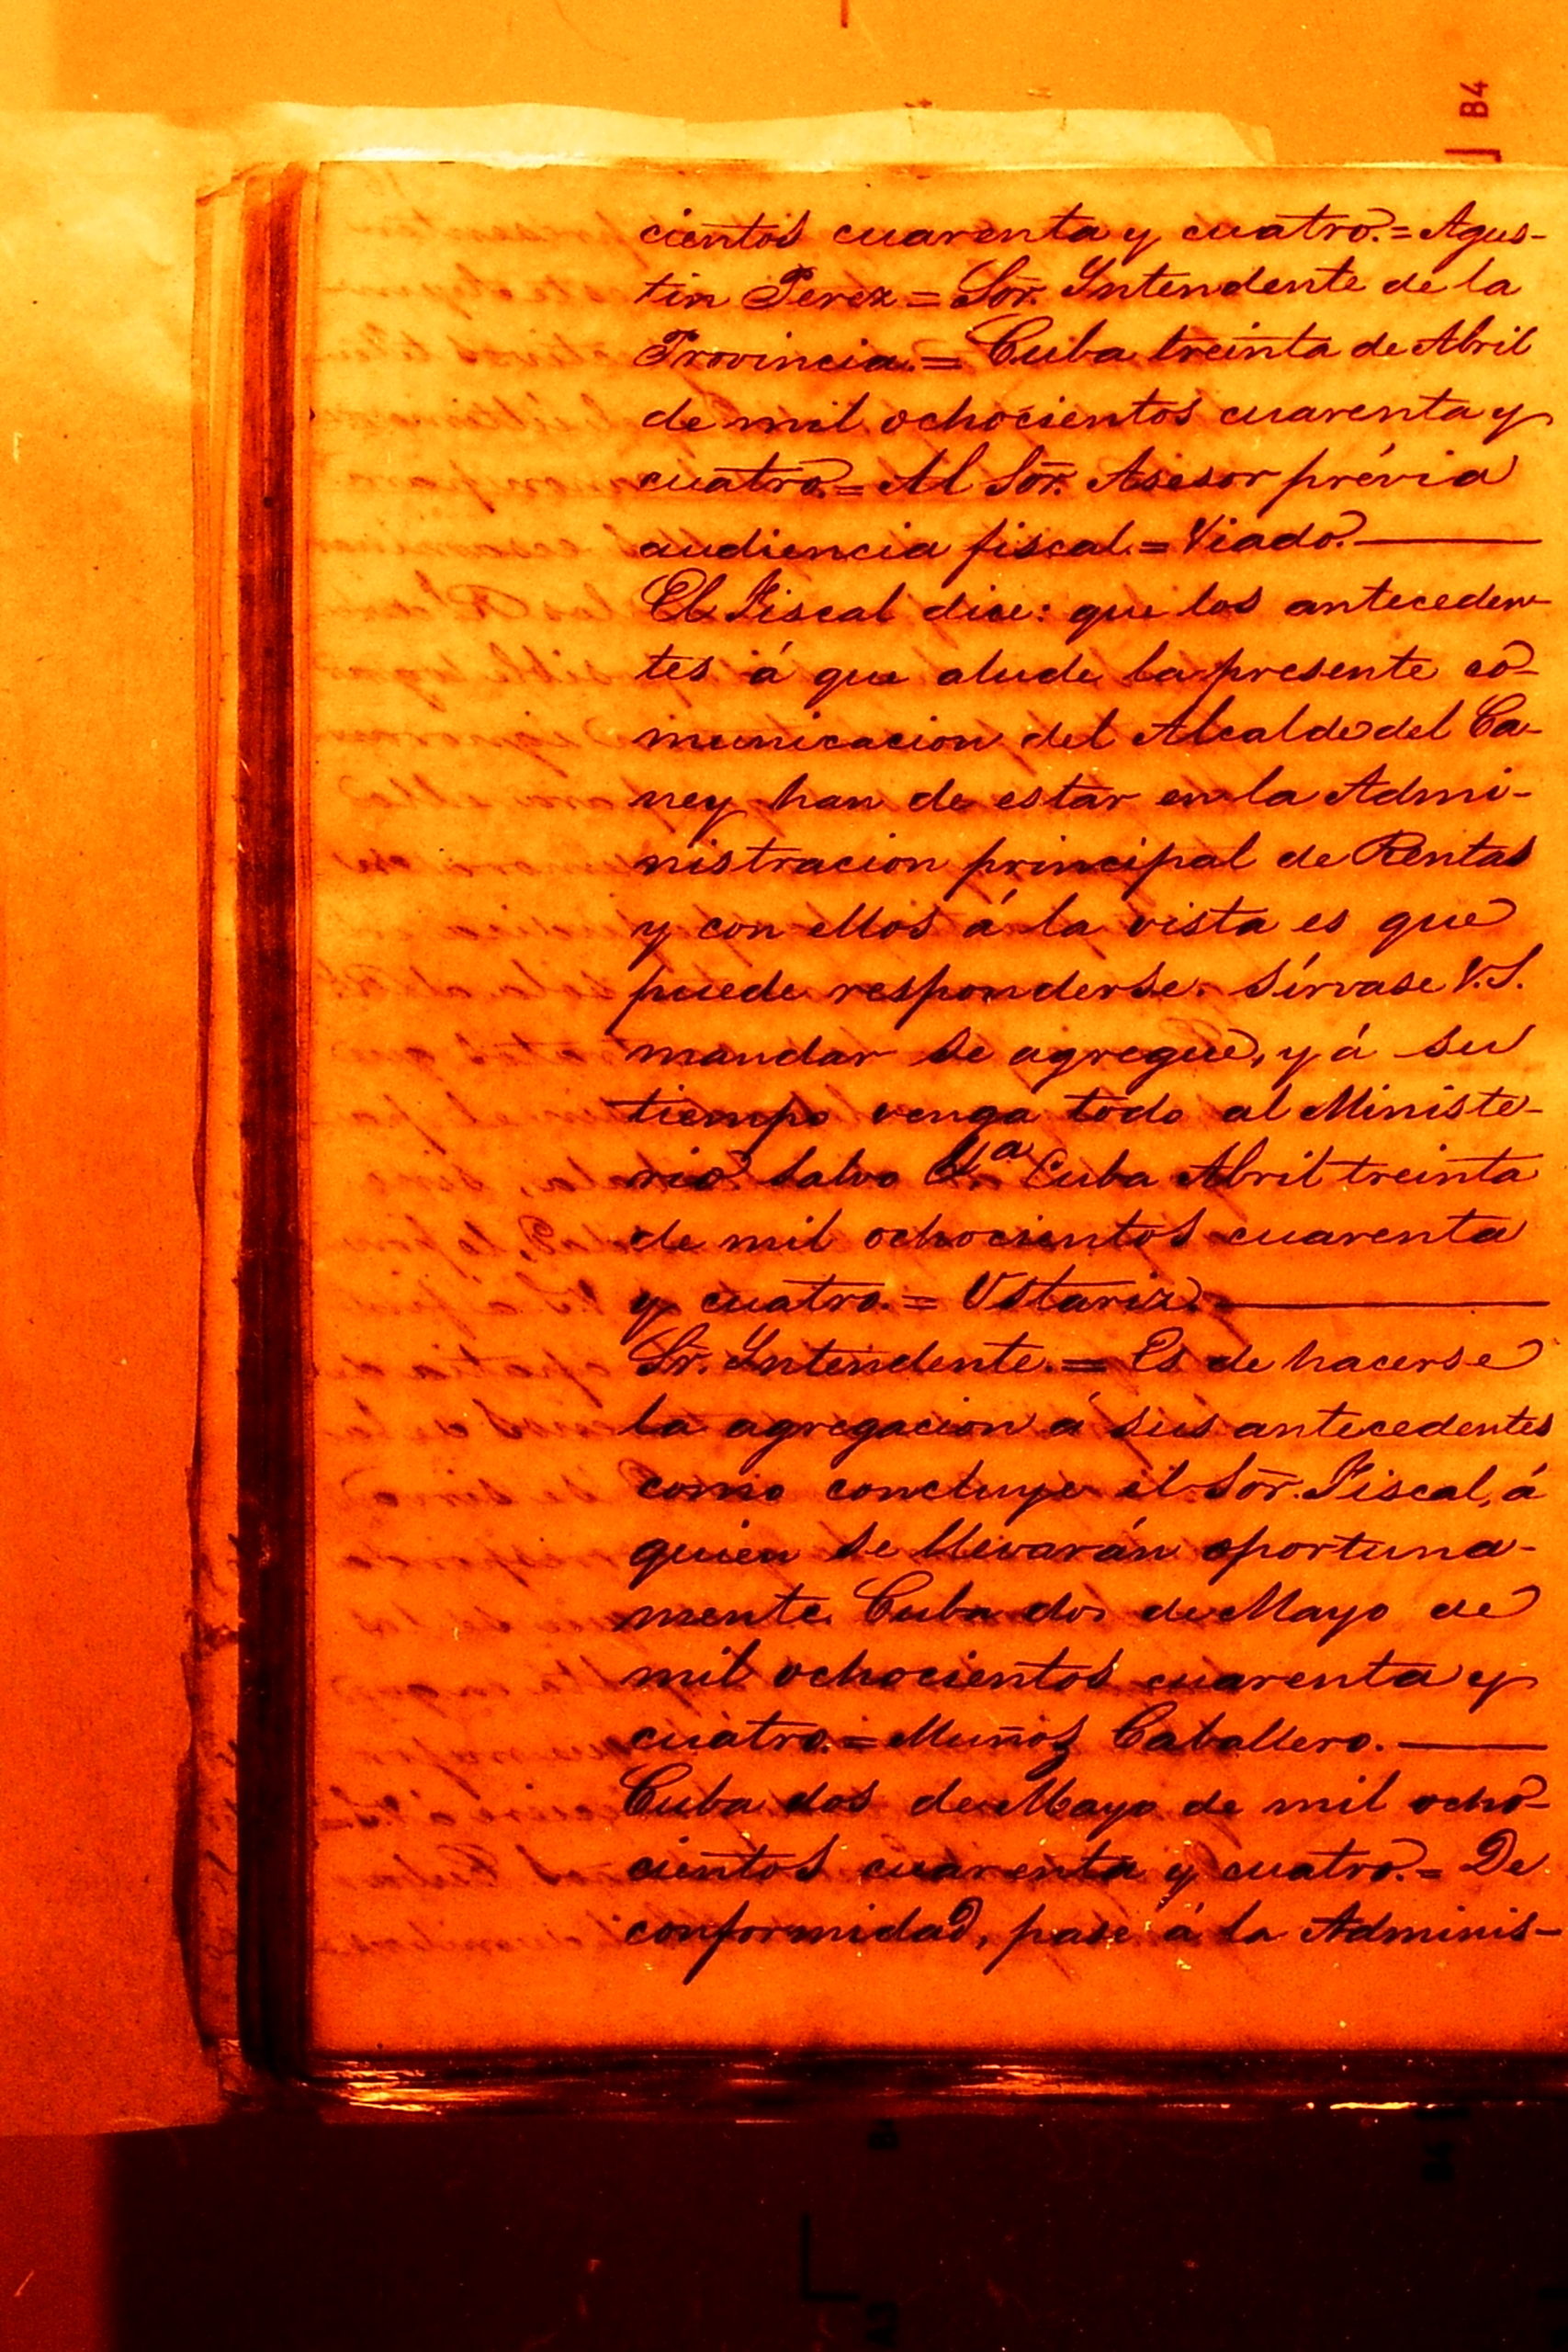 B4
cientos cuarenta y cuatro.=Agus-
tin Perez=Sōr. Yntendente de la
Provincia.=Cuba treinta de Abril
de mil ochocientos cuarenta y
cuatro.=Al Sōr. Asesor prévia
audiencia fiscal.=Viado.
El Fiscal dice: que los anteceden-
tes á que alude la presente co-
municacion del Alcalde del Ca-
ney han de estar en la Admi-
nistracion principal de Rentas
y con ellos á la vista es que
puede responderse. Sírvase V.S.
mandar se agregue, y á su
tiempo venga todo al Ministe-
rio. Salvo Cuba Abril treinta
de mil ochocientos cuarenta
y cuatro.=Ustariz.
Sr. Yntendente.=Es de hacerse
la agregacion á sus antecedentes
como concluye el Sōr. Fiscal, á
quien se llevarán oportuna-
mente. Cuba dos de Mayo de
mil ochocientos cuarenta y
cuatro.=Muñoz Caballero.
Cuba dos de Mayo de mil ocho-
cientos cuarenta y cuatro.=De
conformidad, pase á la Adminis-